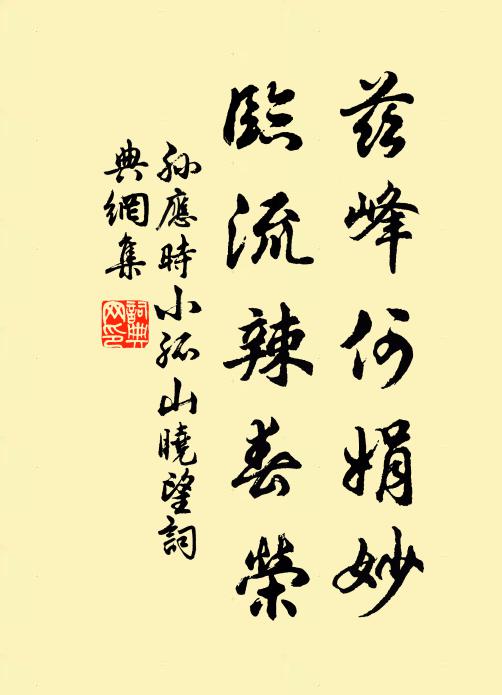 茲峰何娟妙
臨流辣春榮
孫應時小孤山曉望詞
典網集
詞典
网印